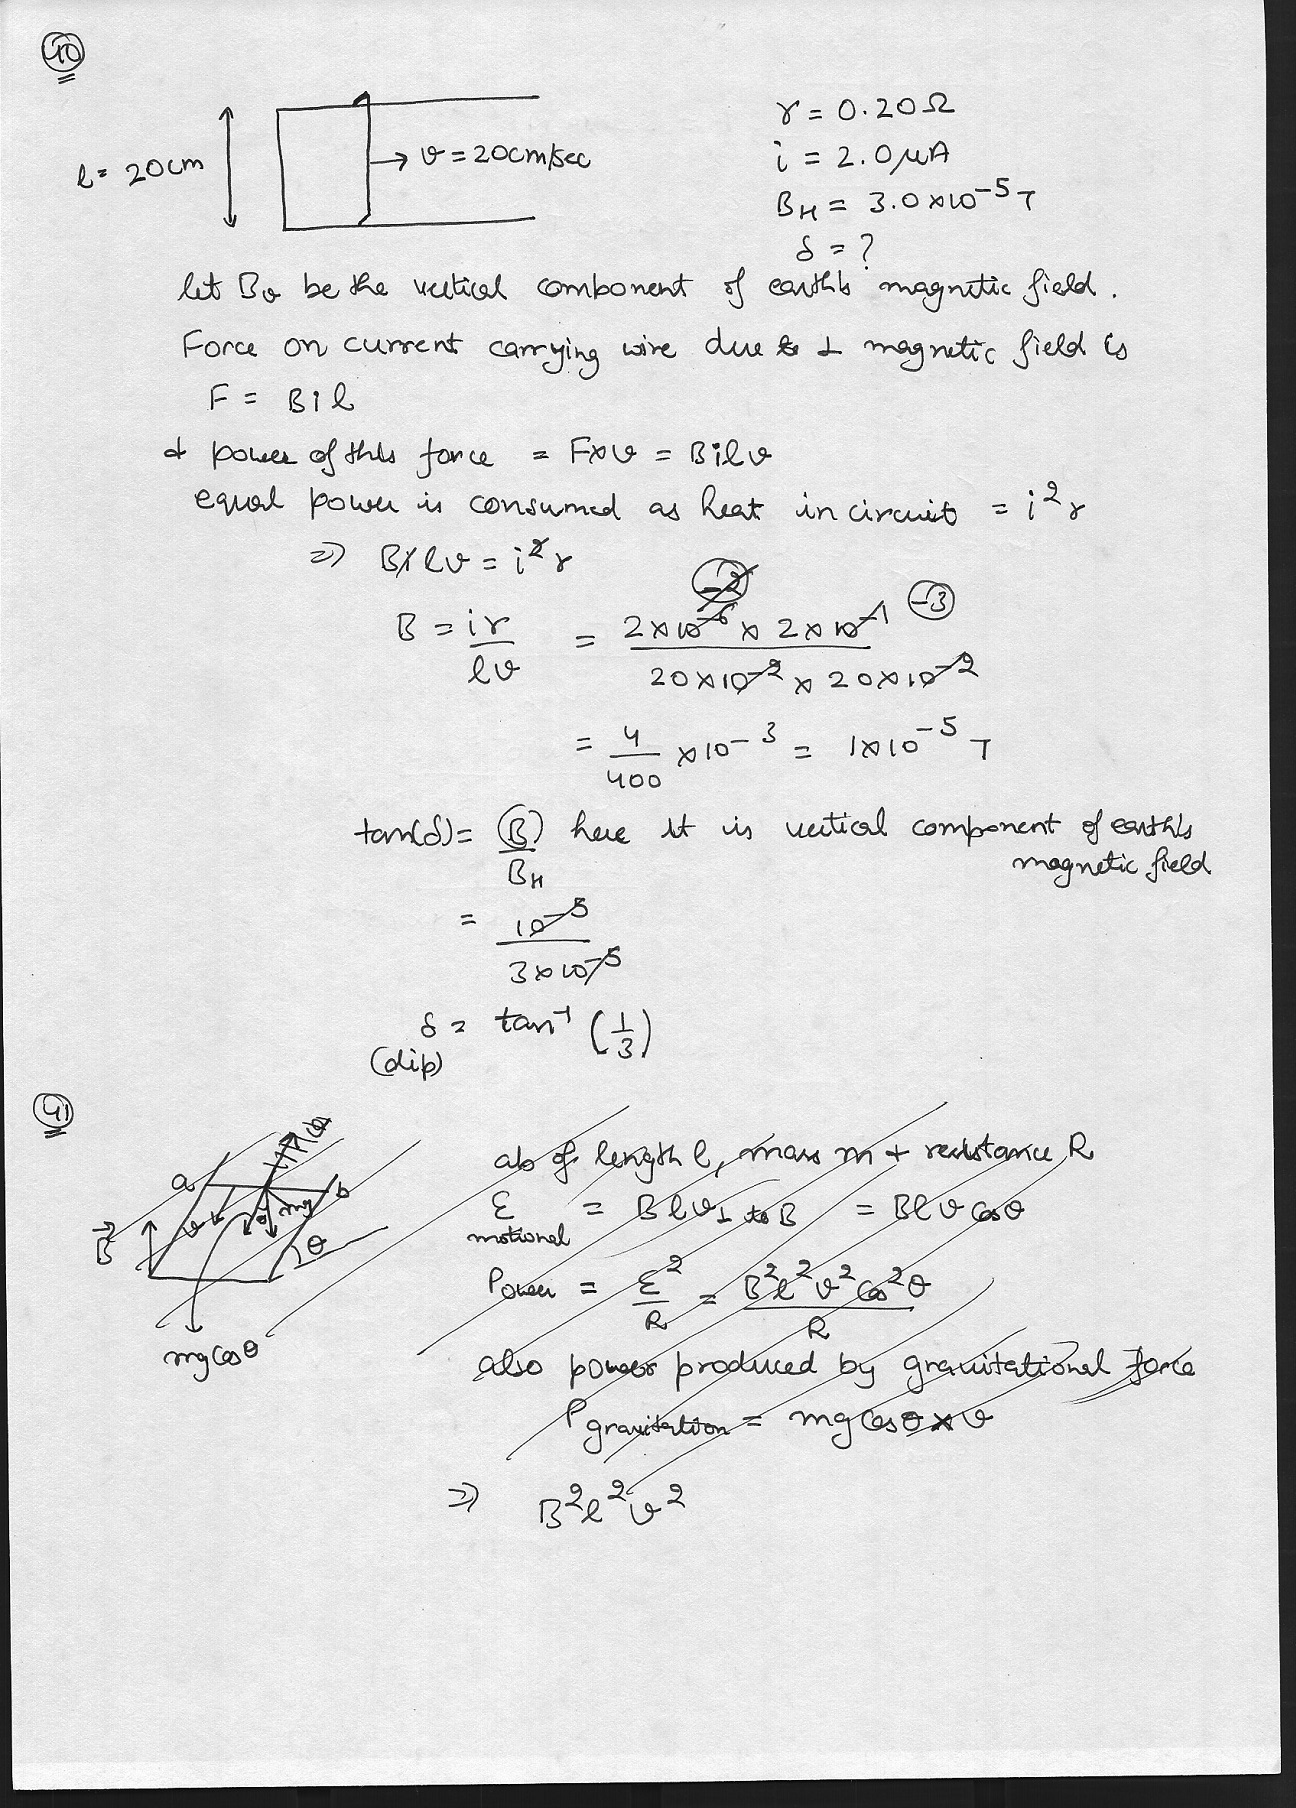 40
l = 20cm
→ v = 20cm/sec
r = 0.20Ω
i = 2.0μA
B_H = 3.0×10⁻⁵ T
δ = ?
let Bv be the vertical component of earth's magnetic field.
Force on current carrying wire due to ⊥ magnetic field is
F = Bil
& power of this force = F×v = Bilv
equal power is consumed as heat in circuit = i²r
⇒ Bilv = i²r
B = ir/lv = 2×10⁻⁶ × 2×10⁻¹ / 20×10⁻² × 20×10⁻² -3
= 4/400 ×10⁻³ = 1×10⁻⁵ T
tan(δ) = B/B_H here it is vertical component of earth's
magnetic field
= 10⁻⁵/3×10⁻⁵
δ = tan⁻¹(1/3)
(dip)
41
a
b
v
mg
B
θ
mg cosθ
ab of length l, mass m & resistance R
ε motional = Blv⊥ to B = Blv cosθ
Power = ε²/R = B²l²v²cos²θ/R
also power produced by gravitational force
P gravitation = mg cosθ × v
⇒ B²l²v²